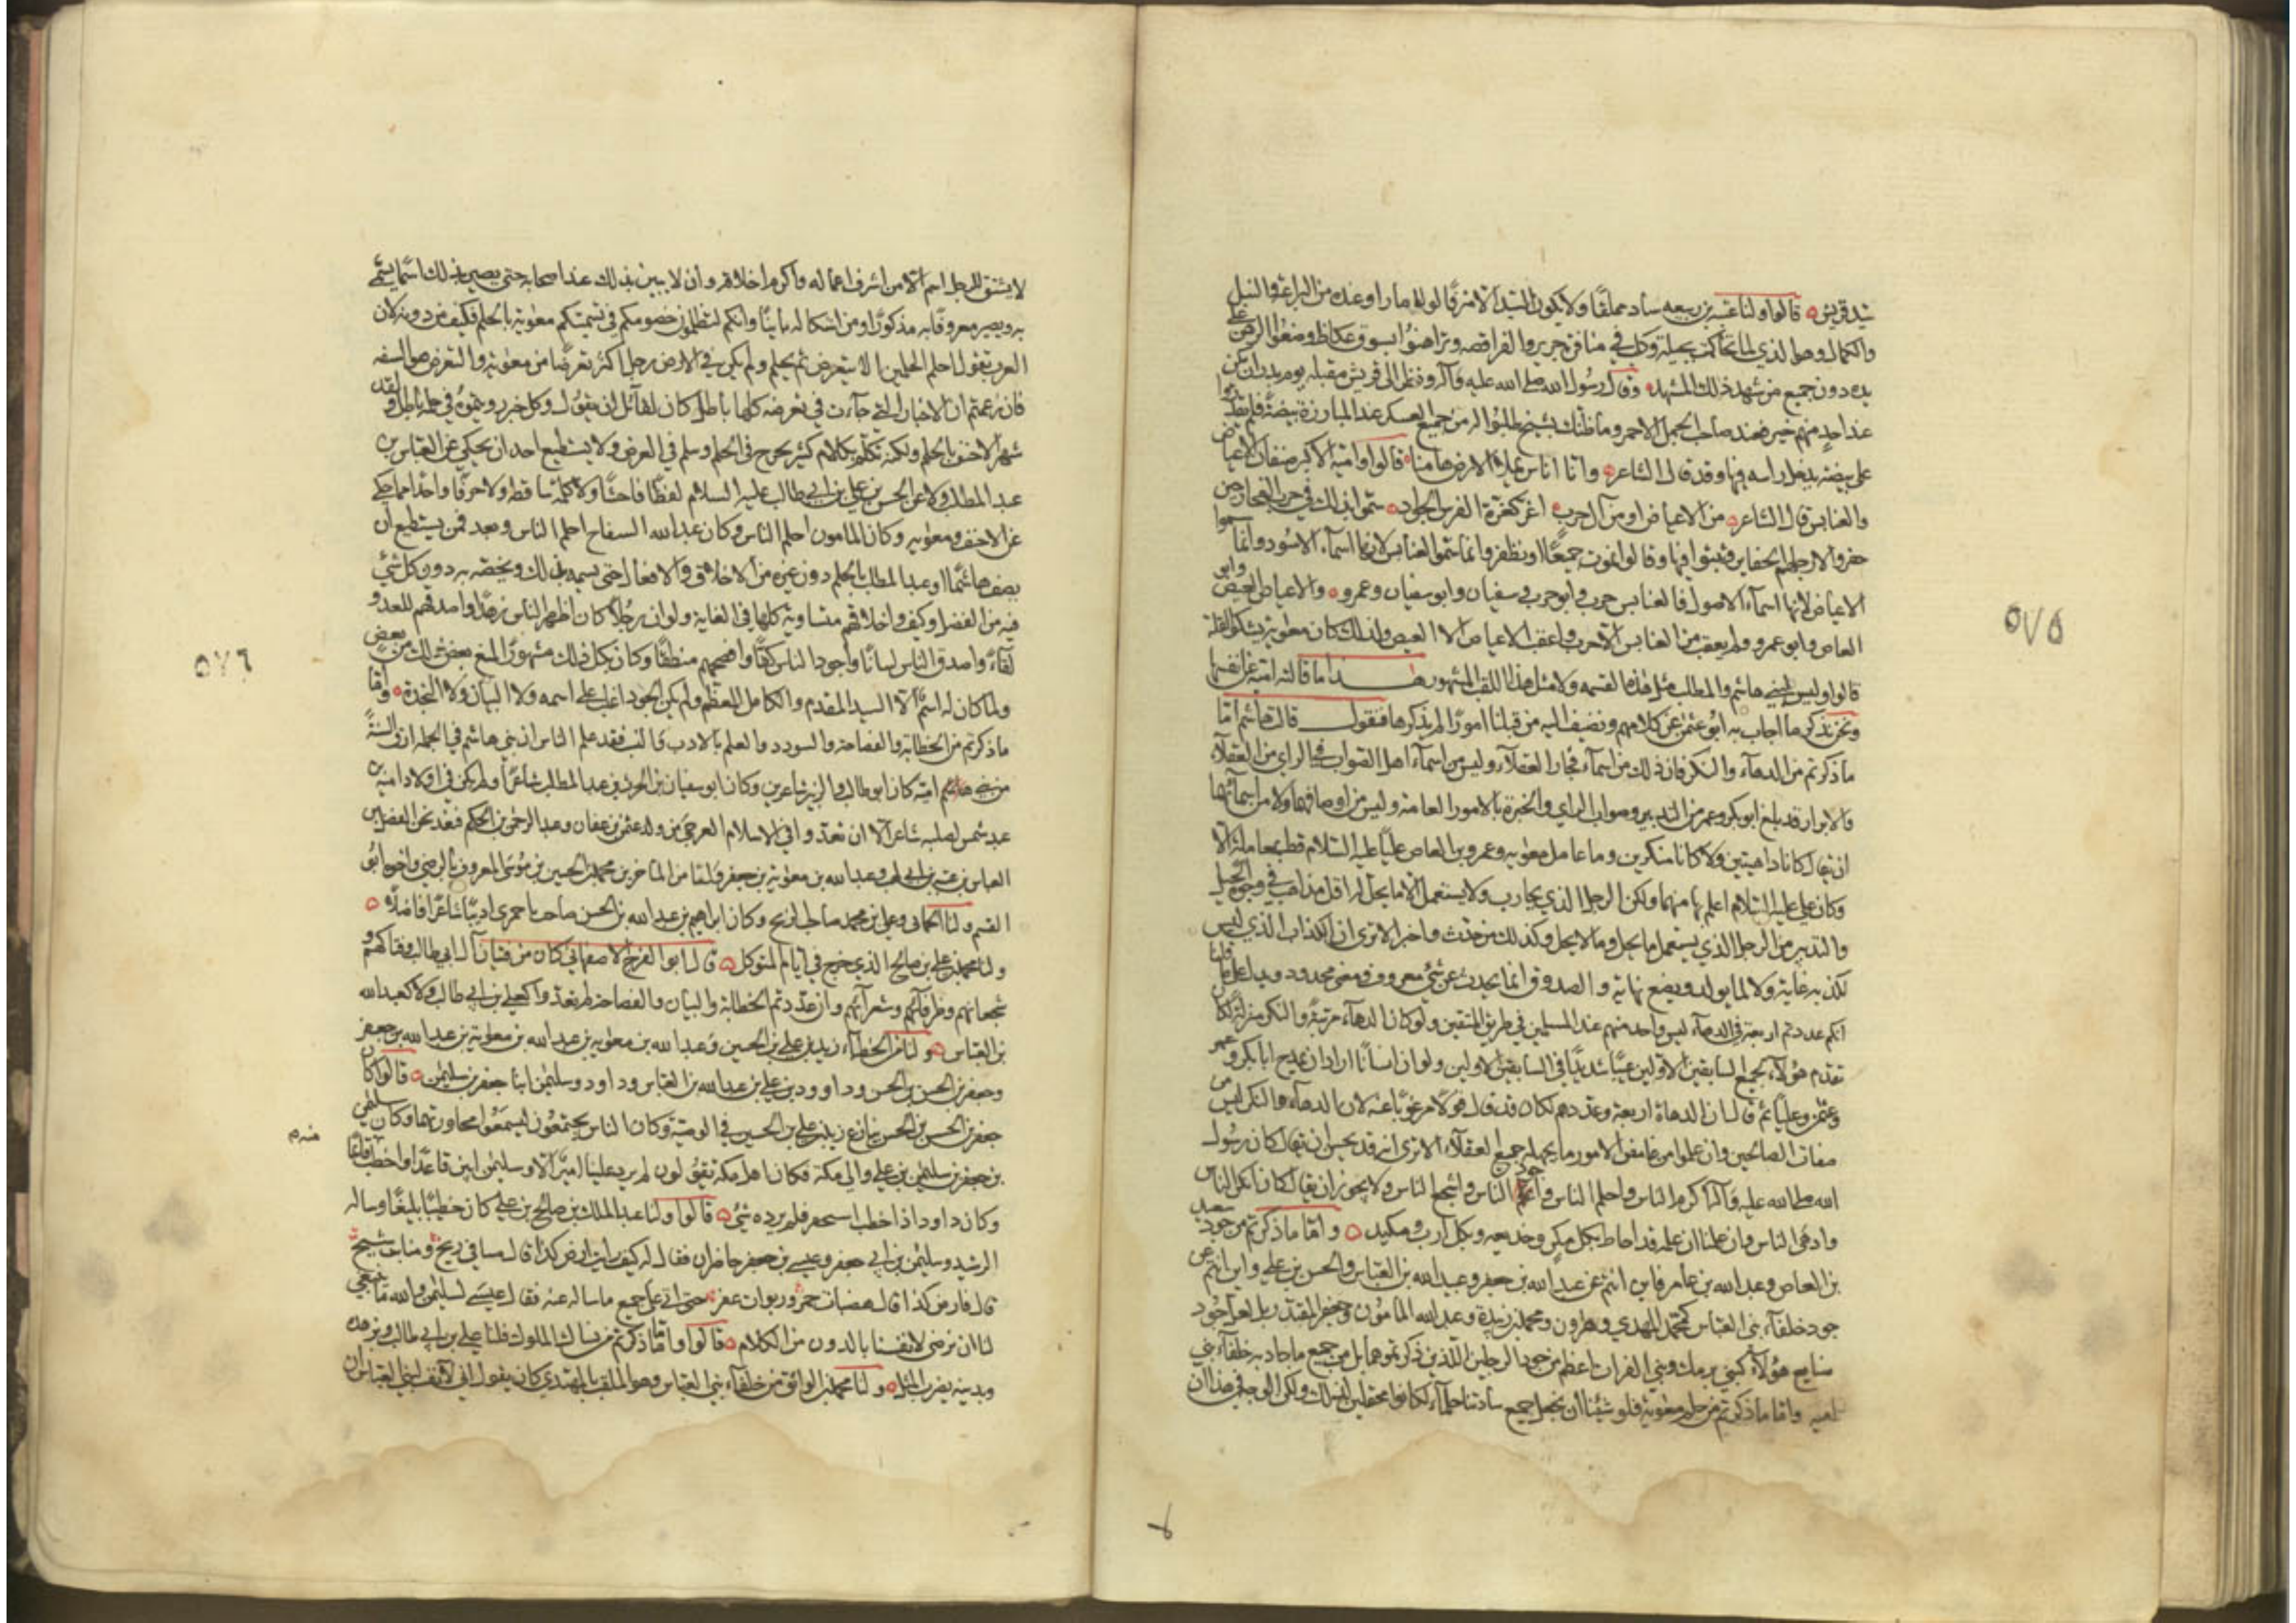 سيد قريش قالوا ولنا عتبة بن ربيعة ساد مملقا ولا يكون السيد الا مترفا لولا ما راوا عنده من البراعة والنبل
والكمال وهو الذي لما تحاكمت بجيلة وكلب في منافرة جرير والفرافصة وتراهنوا بسوق عكاظ وضعوا الرهن على
يده دون جميع من شهد ذلك المشهد وقال رسول الله صلى الله عليه وآله ونظر الى قريش مقبلة يوم بدر ان يكن
عند احد منهم خير فعند صاحب الجمل الاحمر وما ظنك بشيخ طلبوا له من جميع العسكر عند المبارزة بيضة فلم يقدروا
على بيضة يدخل راسه فيها وقد قال الشاعر وانا اناس يملأ الارض هامنا قالوا وامية الاكبر صنفان الاعياص
والعنابس قال الشاعر من الاعياص او من آل حرب اغر كغرة الفرس الجواد سموا بذلك في حرب الفجار حين
حفروا لارجلهم الحفاير وثبتوا فيها وقالوا نموت جميعا او نظفر وانما سموا العنابس لانها اسماء الاسود وانما سموا
الاعياص لانها اسماء الاصول فالعنابس حرب وابو حرب وسفيان وابو سفيان وعمرو والاعياص العيص وابو
العاص وابو عمرو ولم يعقب من العنابس الا حرب وما عقب الاعياص الا العيص ولذلك كان معوية يشكو القلة
قالوا وليس لبني هاشم والمطلب مثل هذه القسمة ولا مثل هذا اللقب المشهور هذا ما قالته امية عن نفسها
ونحن نذكر ما اجاب به ابو عثمن عن كلامهم ونضيف اليه من قبلنا امورا لم يذكرها فنقول قالت هاشم اما
ما ذكرتم من الدهاء والنكر فان ذلك من اسماء فجار العقلاء وليس من اسماء اهل الصواب في الراي من العقلاء
والابرار قد بلغ ابو بكر وعمر من التدبير وصواب الراي والخبرة بالامور العامة وليس من اوصافهما ولا من اسمائهما
ان يقال كانا داهيتين ولا كانا منكرين وما عامل معوية وعمرو بن العاص عليا عليه السلام قط بمعاملة الا
وكان علي عليه السلام اعلم بها منهما ولكن الرجل الذي يحارب ولا يستعمل الا ما يحل له اقل مذاهب في وجوه الحيل
والتدبير من الرجل الذي يستعمل ما يحل وما لا يحل وكذلك من حدث واخبر الا ترى ان الكذاب الذي ليس
لكذبه غاية ولا لما يولد ويصنع نهاية والصدوق انما يحدث عن شئ معروف ومعنى محدود ويدل على ما قلنا
انكم عددتم اربعة في الدهاء ليس واحد منهم عند المسلمين في طريق المتقين ولو كان الدهاء مرتبة والنكر منزلة لكان
تقدم هؤلاء بجميع السابقين الاولين عيبا شديدا في السابقين الاولين ولو ان انسانا اراد ان يمدح ابا بكر وعمر
وعثمن وعليا ثم قال ان الدهاة اربعة وعددهم لكان قد قال قولا مرغوبا عنه لان الدهاء والنكر ليس من
صفات الصالحين وان علموا من غامض الامور ما يجهله جميع العقلاء الا ترى انه قد يحسن ان يقال كان رسول
الله صلى الله عليه وآله اكرم الناس واحلم الناس واجود الناس واشجع الناس ولا يجوز ان يقال كان امكر الناس
وادهى الناس وان علمنا ان علمه قد احاط بكل مكر وخديعة وبكل ارب ومكيدة واما ما ذكرتم من جود سعيد
بن العاص وعبد الله بن عامر فاين انتم عن عبد الله بن جعفر وعبيد الله بن العباس والحسن بن علي واين انتم عن
جود خلفاء بني العباس كمحمد المهدي وهرون ومحمد بن زبيدة وعبد الله المامون وجعفر المقتدر بل لعل جود
صنايع هؤلاء كبني برمك وبني الفرات اعظم من جود الرجلين اللذين ذكرتموهما بل من جميع ما جاد به خلفاء بني
امية واما ما ذكرتم من حلم معوية فلو شئنا ان نجعل جميع سادتنا حلماء لكانوا محتملين لذلك ولكن الوجه في هذا ان
٥٧٥
لا يشتق للرجل اسم الا من اشرف اعماله واكرم اخلاقه وان لا يبين بذلك عند اصحابه حتى يصير بذلك اسما يسمى
به ويصير معروفا به مذكورا ومن اشكاله باينا وانكم لتظلمون خصومكم في تسميتكم معوية بالحلم فكيف من دونه لان
العرب تقول احلم الحلمين الا يتعرض ثم يحلم ولم يكن في الارض رجل اكثر تعرضا من معوية والتعرض هو السفه
فان زعمتم ان الاخبار التي جاءت في تعرضه كلها باطل كان لقائل ان يقول وكل خبر رويتموه في حلمه باطل ولقد
شهر الاحنف بالحلم ولكنه تكلم بكلام كثير يجرح في الحلم وسلم في العرض ولا يستطيع احد ان يحكي عن العباس بن
عبد المطلب ولا عن الحسن بن علي بن ابي طالب عليه السلام لفظا فاحشا ولا كلمة ساقطة ولا حرفا واحدا مما حكي
عن الاحنف ومعوية وكان المامون احلم الناس وكان عبد الله السفاح احلم الناس وبعد فمن يستطيع ان
يصف هاشما او عبد المطلب بالحلم دون غيره من الاخلاق والافعال حتى يسميه بذلك ويخصه به دون كل شئ
فيه من الفضل وكيف واخلاقهم متساوية كلها في الغاية ولو ان رجلا كان اظهر الناس زهدا واصدقهم للعدو
لقاء واصدق الناس لسانا واجود الناس كفا وافصحهم منطقا وكان بكل ذلك مشهورا لمنع بعض ذلك من بعض
ولما كان له اسم الا السيد المقدم والكامل المعظم ولم يكن الجود اغلب على اسمه ولا البيان ولا النجدة واما
ما ذكرتم من الخطابة والفصاحة والسودد والعلم بالادب والنسب فقد علم الناس ان بني هاشم في الجملة ارق السنة
من بني امية كان ابو طالب والزبير شاعرين وكان ابو سفيان بن الحرث بن عبد المطلب شاعرا ولم يكن في اولاد امية بن
عبد شمس لصلبه شاعر الا ان تعدوا في الاسلام العرجي من ولد عثمن بن عفان وعبد الرحمن بن الحكم فنعد نحن الفضل بن
العباس بن عتبة بن ابي لهب وعبد الله بن معوية بن جعفر ولنا من المتاخرين محمد بن الحسين بن موسى المعروف بالرضي واخوه ابو
القسم ولنا الحماني وعلي بن محمد صاحب الزنج وكان ابراهيم بن عبد الله بن الحسن صاحب باخمرى اديبا شاعرا فاضلا
ولنا محمد بن علي بن صالح الذي خرج في ايام المتوكل قال ابو الفرج الاصفهاني كان من فتيان آل ابي طالب وفتاكهم و
شجعانهم وظرفائهم وشعرائهم وان عددتم الخطابة والبيان والفصاحة لم تعدوا كعلي بن ابي طالب ولا كعبد الله
بن العباس ولنا من الخطباء زيد بن علي بن الحسين وعبد الله بن معوية بن عبد الله بن معوية بن عبد الله بن جعفر
وجعفر بن الحسن بن الحسن وداوود بن علي بن عبد الله بن العباس وداود وسليمن ابنا جعفر بن سليمن قالوا كان
جعفر بن الحسن بن الحسن ينازع زيد بن علي بن الحسين في الوصية وكان الناس يجتمعون ليسمعوا محاورتهما وكان سليمن
بن جعفر بن سليمن بن علي والي مكة فكان اهل مكة يقولون لم يرد علينا امير الا وسليمن ابين قاعدا واخطب قائما
وكان داود اذا خطب اسحنفر فلم يرده شئ قالوا ولنا عبد الملك بن صالح بن علي كان خطيبا بليغا وساله
الرشيد وسليمن بن ابي جعفر وعيسى بن جعفر حاضران فقال له كيف رايت ارض كذا قال مسافي ريح ومنابت شيح
قال فارض كذا قال هضبات حمر وربوات عفر حتى اتى على جميع ما ساله عنه فقال عيسى لسليمن والله ما ينبغي
لنا ان نرضى لانفسنا بالدون من الكلام قالوا واما ما ذكرتم من نساك الملوك فلنا علي بن ابي طالب وبزهده
وبدينه يضرب المثل ولنا محمد بن الواثق من خلفاء بني العباس وهو الملقب بالمهتدي كان يقول اني لآنف لبني العباس ان
٥٧٦